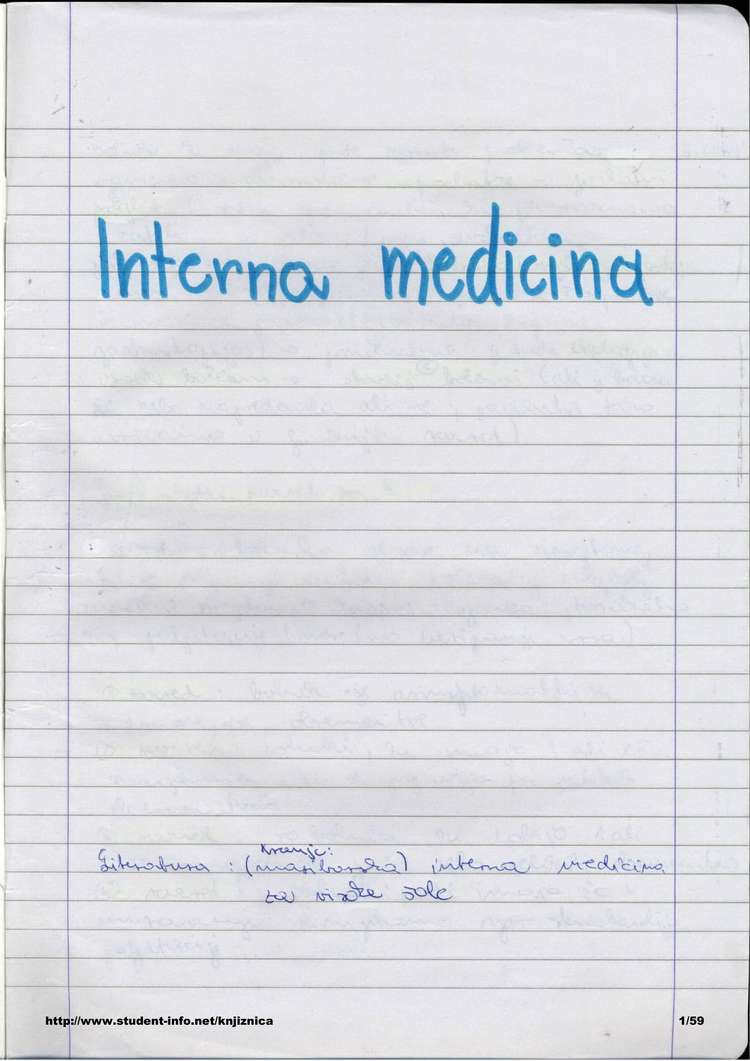 Interna medicina
Kranjc:
Literatura : (mariborska) interna medicina
za višje šole
http://www.student-info.net/knjiznica
1/59